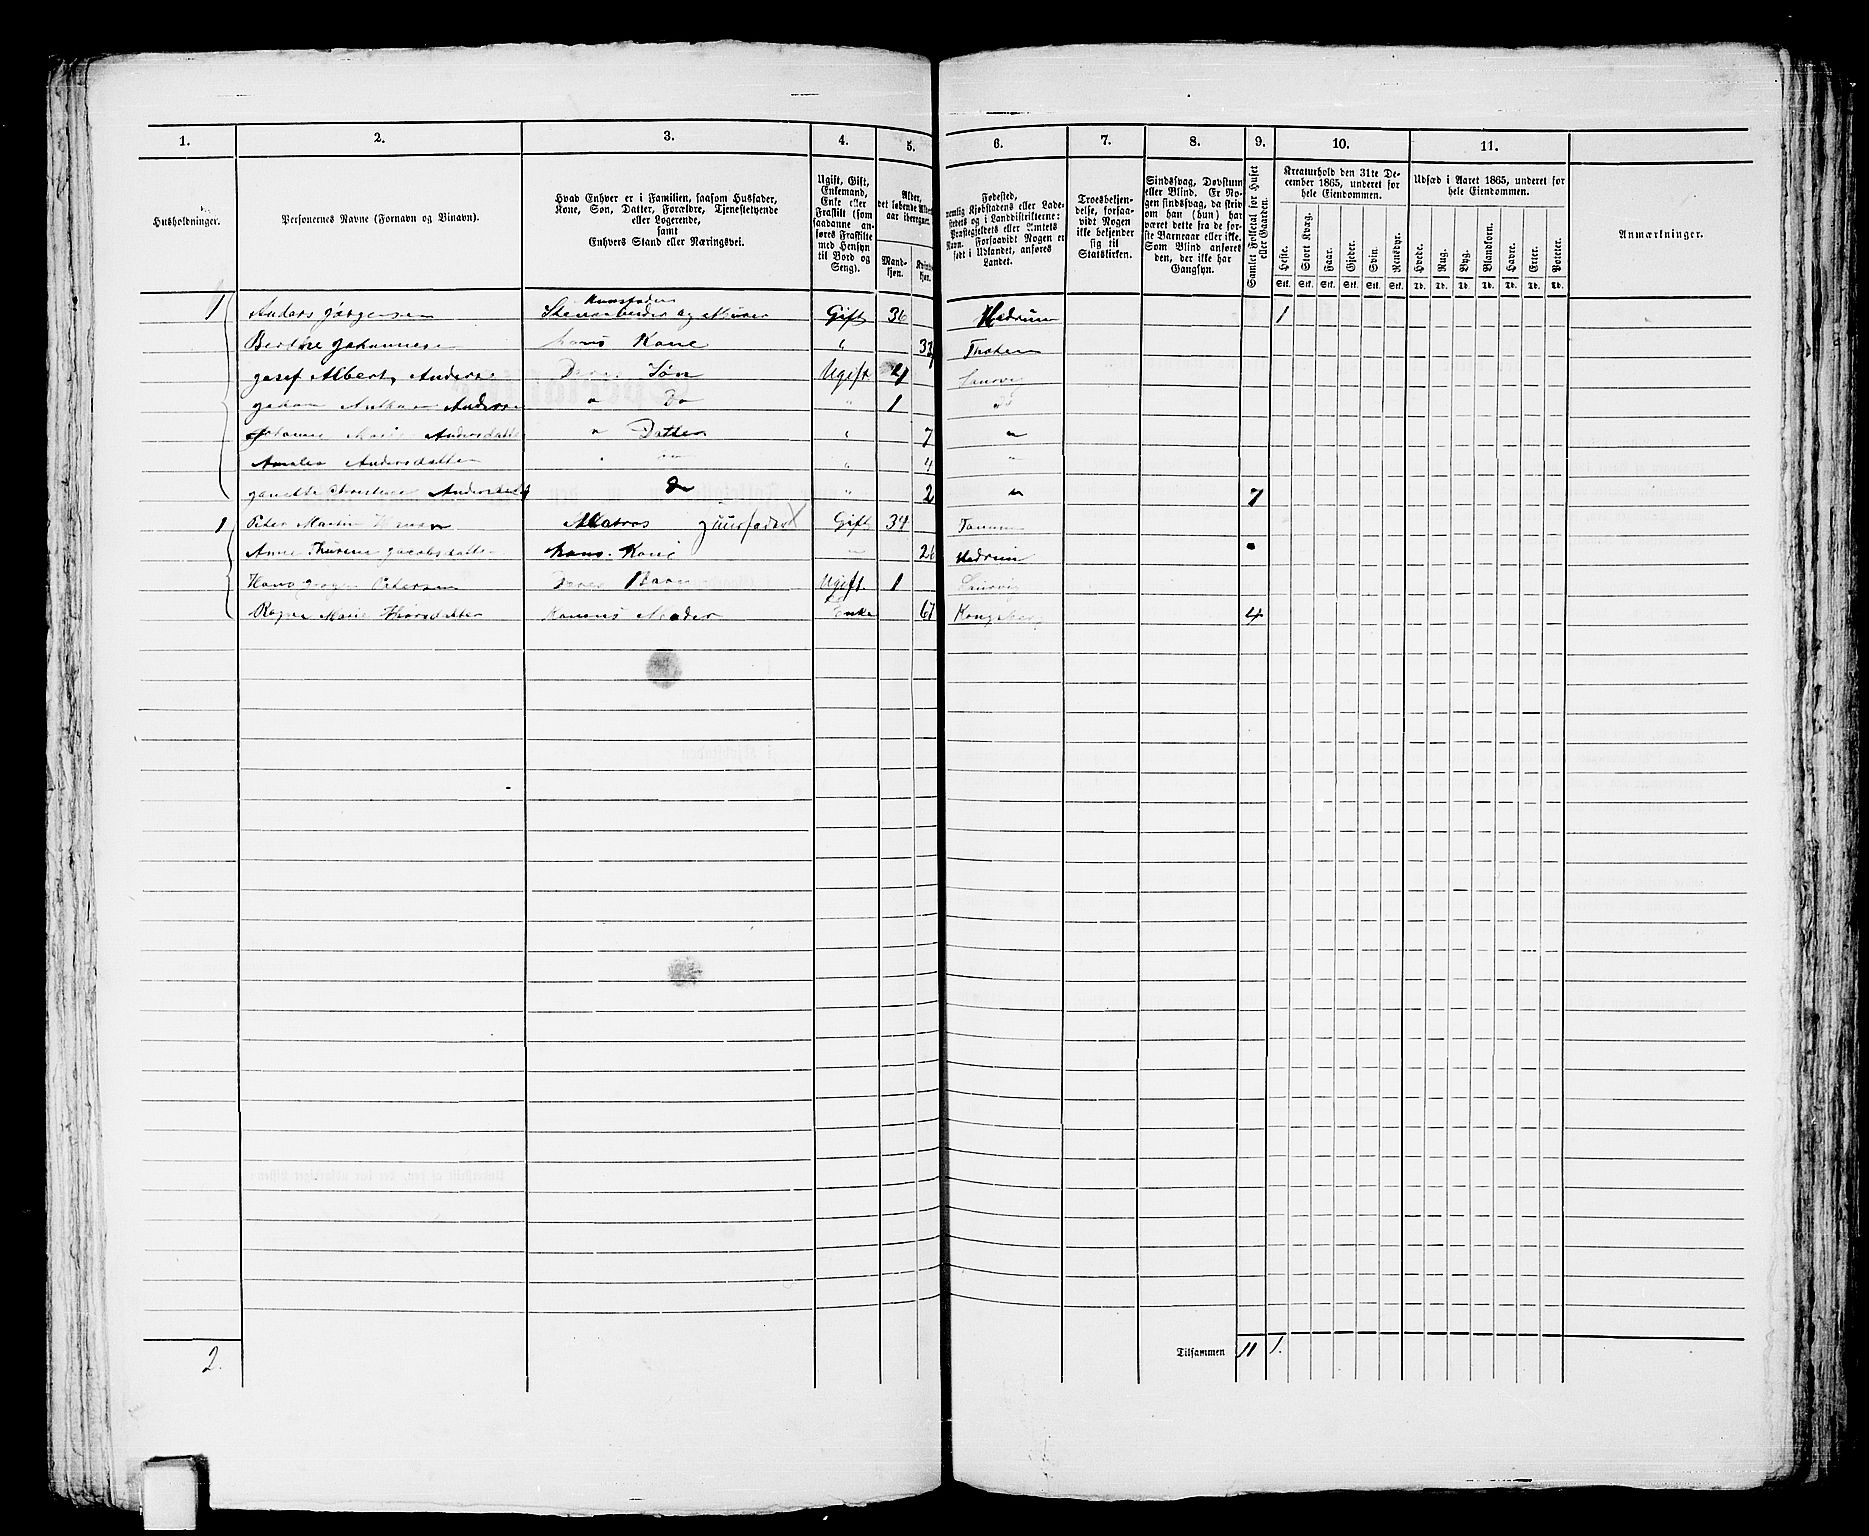 1. 2. 3. 4. 5. 6. 7. 8. 9. 10. 11.
Husholdninger.
Personernes Navne (Fornavn og Binavn).
Hvad Enhver er i Familien, saasom Husfader,
Kone, Søn, Datter, Forældre, Tjenestetyende
eller Logerende,
samt
Enhvers Stand eller Næringsvei.
Ugift, Gift,
Enkemand,
Enke eller
Fraskilt (som
saadanne an-
føres Fraskilte
med Hensyn
til Bord og
Seng).
Alder,
det løbende Alders-
aar iberegnet.
Mand-
kjøn.
Kvinde-
kjøn.
Fødested,
nemlig Kjøbstadens eller Lade-
stedets og i Landdistrikterne:
Præstegjeldets eller Amtets
Navn. Forsaavidt Nogen er
født i Udlandet, anføres
Landet.
Troesbekjen-
delse, forsaa-
vidt Nogen
ikke bekjender
sig til
Statskirken.
Sindssvag, Døvstum
eller Blind. Er No-
gen sindssvag, da skriv
om han (hun) har
været dette fra de før-
ste Barneaar eller ikke.
Som Blind anføres
den, der ikke har
Gangsyn.
Samlet Folketal for Huset
eller Gaarden.
Kreaturhold den 31te De-
cember 1865, underet for
hele Eiendommen.
Heste. Stort Kvæg. Faar. Gjeder. Svin. Rensdyr.
Stk. Stk. Stk. Stk. Stk. Stk.
Udsæd i Aaret 1865, underet for
hele Eiendommen.
Hvede. Rug. Byg. Blandkorn. Havre. Erter. Poteter.
Td. Td. Td. Td. Td. Td. Td.
Anmærkninger.
Huusfader
1 Anders Jørgensen Steenarbeider og Murer Gift 36 Hedrum 1
Berthe Johannese hans Kone " 33 Thoten
Josef Albert Anderse Deres Søn Ugift 4 Laurvig
Johan Anderse " Do " 1 "
Johanne Marie Andersdatter " Datter " 7 "
Amalia Andersdatter " " " 4 "
Janette Christine Andersdatter Do " 2 " 7
1 Peter Martin Hansen Matros Huusfader X Gift 34
Anne Thurine Jacobsdatter hans Kone " 26 Hedrum
Hans Jørgen Petersen Deres Barn Ugift 1 Laurvig
Marie Konens Moder Enke 67 Kongsberg 4
2. Tilsammen 11 1.